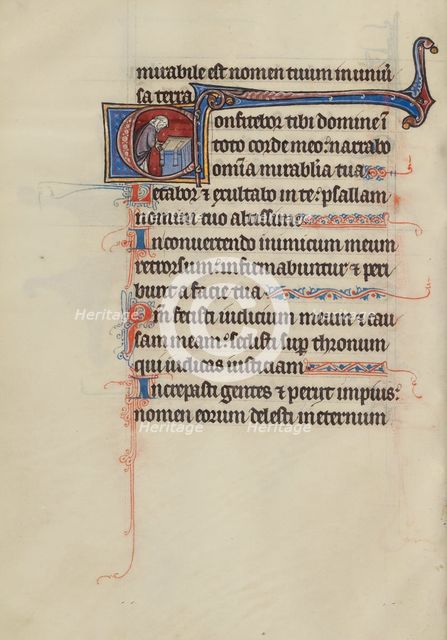 mirabile est nomen tuum in uniu
sa terra
Confitebor tibi domine ī
toto corde meo: narrabo
omīa mirabilia tua
Letabor & exultabo in te: psallam
nomini tuo altissime
In convertendo inimicum meum
retrorsum: infirmabuntur & peri
bunt a facie tua
fecisti iudicium meum & cau
sam meam: sedisti sup thronum
qui iudicas iustitiam
Increpasti gentes & periit impius:
nomen eorum delesti in eternum
Heritage
Heritage
Heritage
Heritage